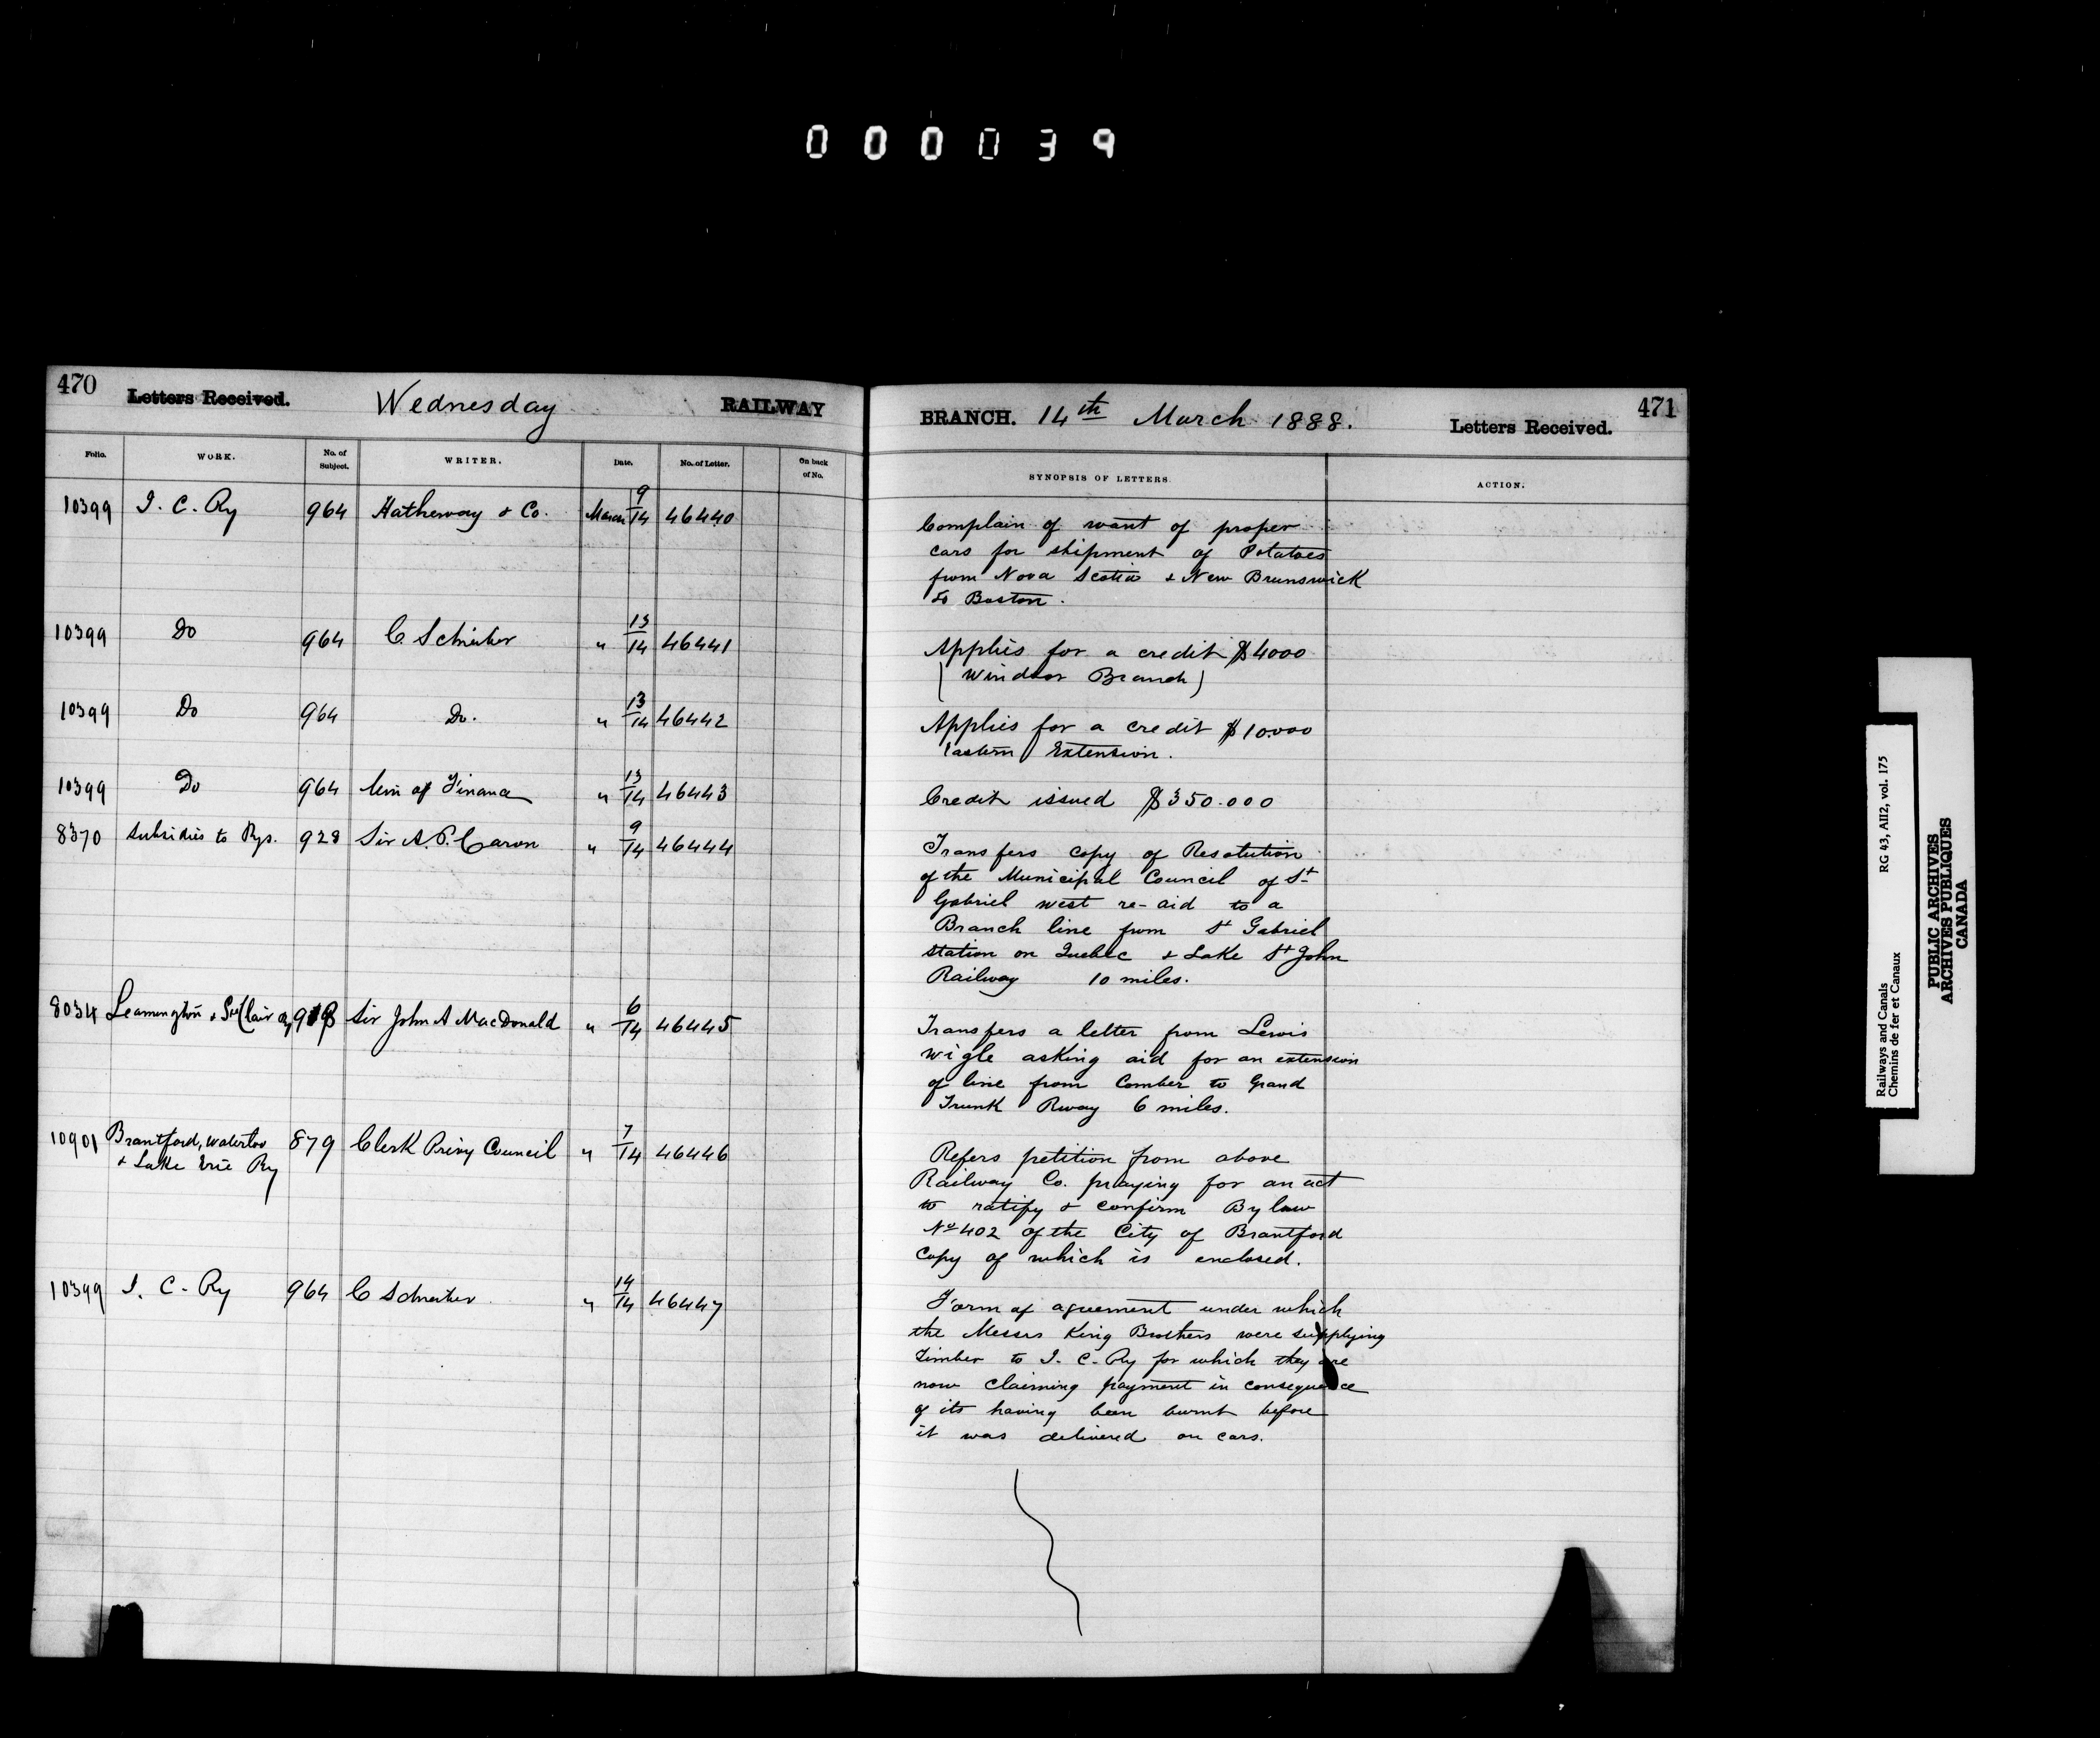 000039
470 Letters Received. Wednesday RAILWAY
Folio. WORK. No. of Subject. WRITER. Date. No. of Letter. On back of No.
10399 I. C. Ry 964 Hatheway & Co. March 9/14 46440
10399 Do 964 C Schreiber " 13/14 46441
10399 Do 964 Do. " 13/14 46442
10399 Do 964 Min of Finance " 13/14 46443
8370 Subsidies to Rys. 928 Sir A. P. Caron " 9/14 46444
8034 Leamington & St Clair Ry Sir John A MacDonald " 6/14 46445
10901 Brantford, Waterloo 879 Clerk Privy Council " 7/14 46446
& Lake Erie Ry
10399 I. C. Ry 964 C Schreiber " 14/14 46447
BRANCH. 14th March 1888. Letters Received. 471
SYNOPSIS OF LETTERS. ACTION.
Complain of want of proper
cars for shipment of Potatoes
from Nova Scotia & New Brunswick
to Boston.
Applies for a credit $4000
(Windsor Branch)
Applies for a credit $10.000
Eastern Extension.
Credit issued $350.000
Transfers copy of Resolution
of the Municipal Council of St
Gabriel west re-aid to a
Branch line from St Gabriel
station on Quebec & Lake St John
Railway 10 miles.
Transfers a letter from Lewis
Wigle asking aid for an extension
of line from Comber to Grand
Trunk Rway 6 miles.
Refers petition from above
Railway Co. praying for an act
to ratify & confirm By law
No 402 of the City of Brantford
copy of which is enclosed.
Form of agreement under which
the Messrs King Brothers were supplying
timber to I. C. Ry for which they are
now claiming payment in consequence
of its having been burnt before
it was delivered on cars.
Railways and Canals RG 43, AII2, vol. 175
Chemins de fer et Canaux
PUBLIC ARCHIVES
ARCHIVES PUBLIQUES
CANADA